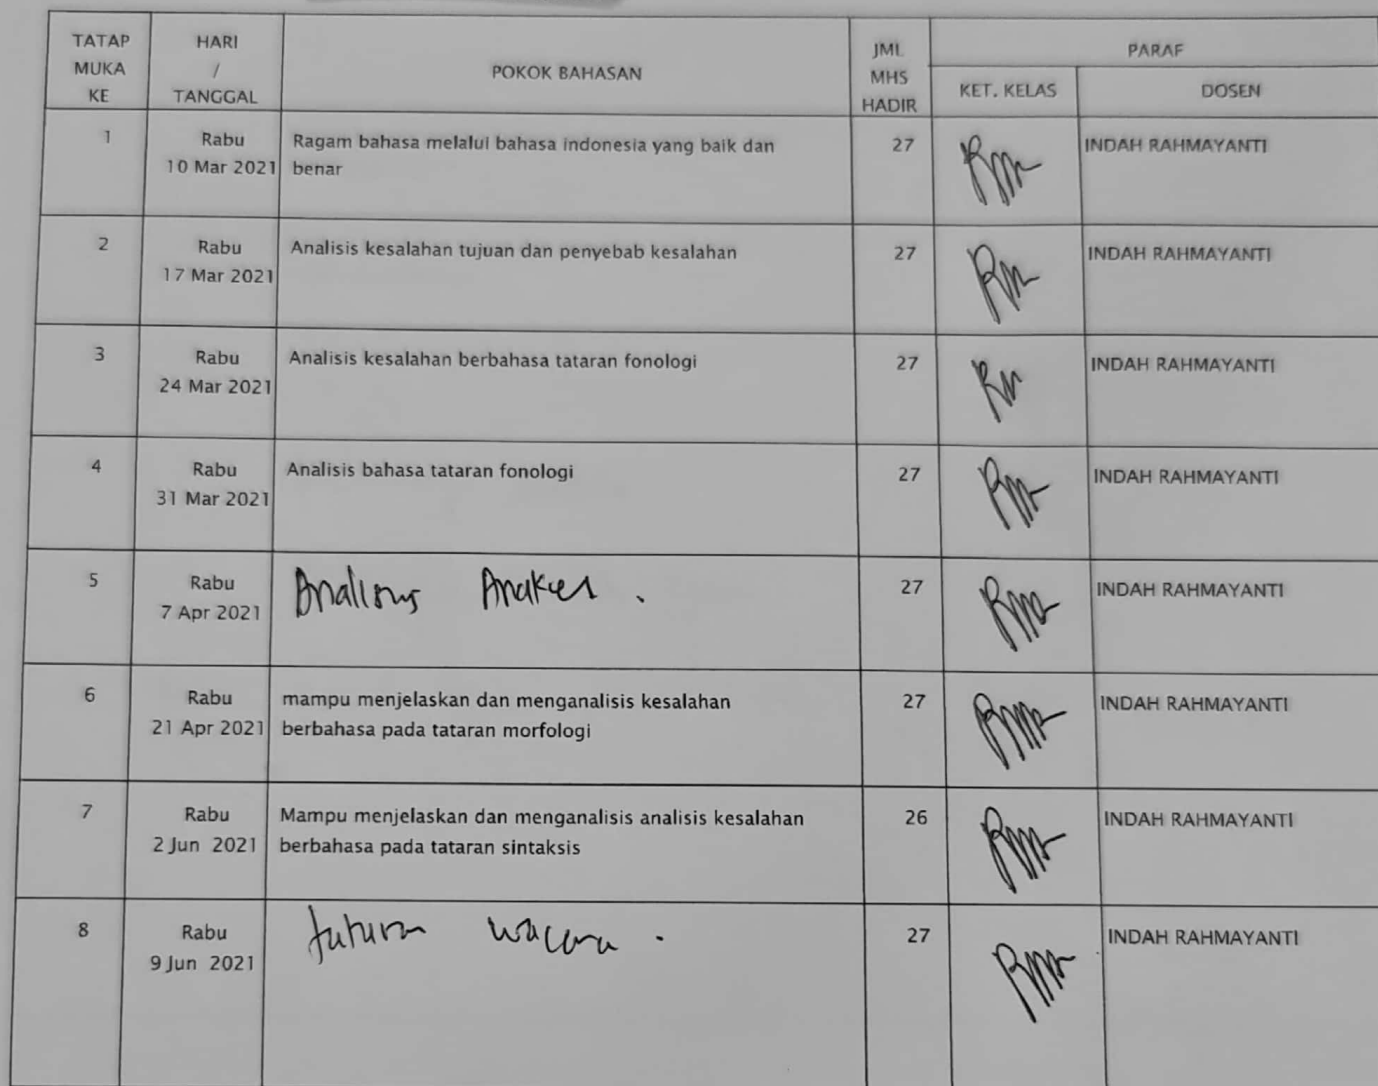 TATAP MUKA KE
HARI / TANGGAL
POKOK BAHASAN
JML MHS HADIR
PARAF
KET. KELAS
DOSEN
1
Rabu
10 Mar 2021
Ragam bahasa melalui bahasa indonesia yang baik dan
benar
27
INDAH RAHMAYANTI
2
Rabu
17 Mar 2021
Analisis kesalahan tujuan dan penyebab kesalahan
27
INDAH RAHMAYANTI
3
Rabu
24 Mar 2021
Analisis kesalahan berbahasa tataran fonologi
27
INDAH RAHMAYANTI
4
Rabu
31 Mar 2021
Analisis bahasa tataran fonologi
27
INDAH RAHMAYANTI
5
Rabu
7 Apr 2021
27
INDAH RAHMAYANTI
6
Rabu
21 Apr 2021
mampu menjelaskan dan menganalisis kesalahan
berbahasa pada tataran morfologi
27
INDAH RAHMAYANTI
7
Rabu
2 Jun 2021
Mampu menjelaskan dan menganalisis analisis kesalahan
berbahasa pada tataran sintaksis
26
INDAH RAHMAYANTI
8
Rabu
9 Jun 2021
wacana .
27
INDAH RAHMAYANTI